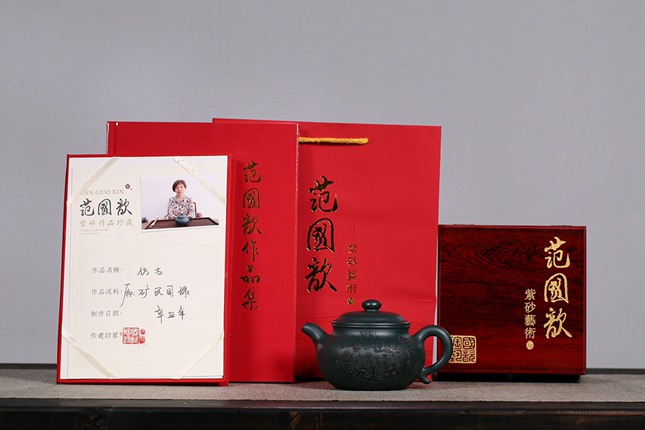 FAN GUO XIN
范國歆
紫砂作品珍藏
作品名稱： 仿古
作品泥料： 原矿民国绿
制作日期： 辛丑年
作者印鉴：
范國歆作品集
范國歆
紫砂藝術
范國歆
紫砂藝術